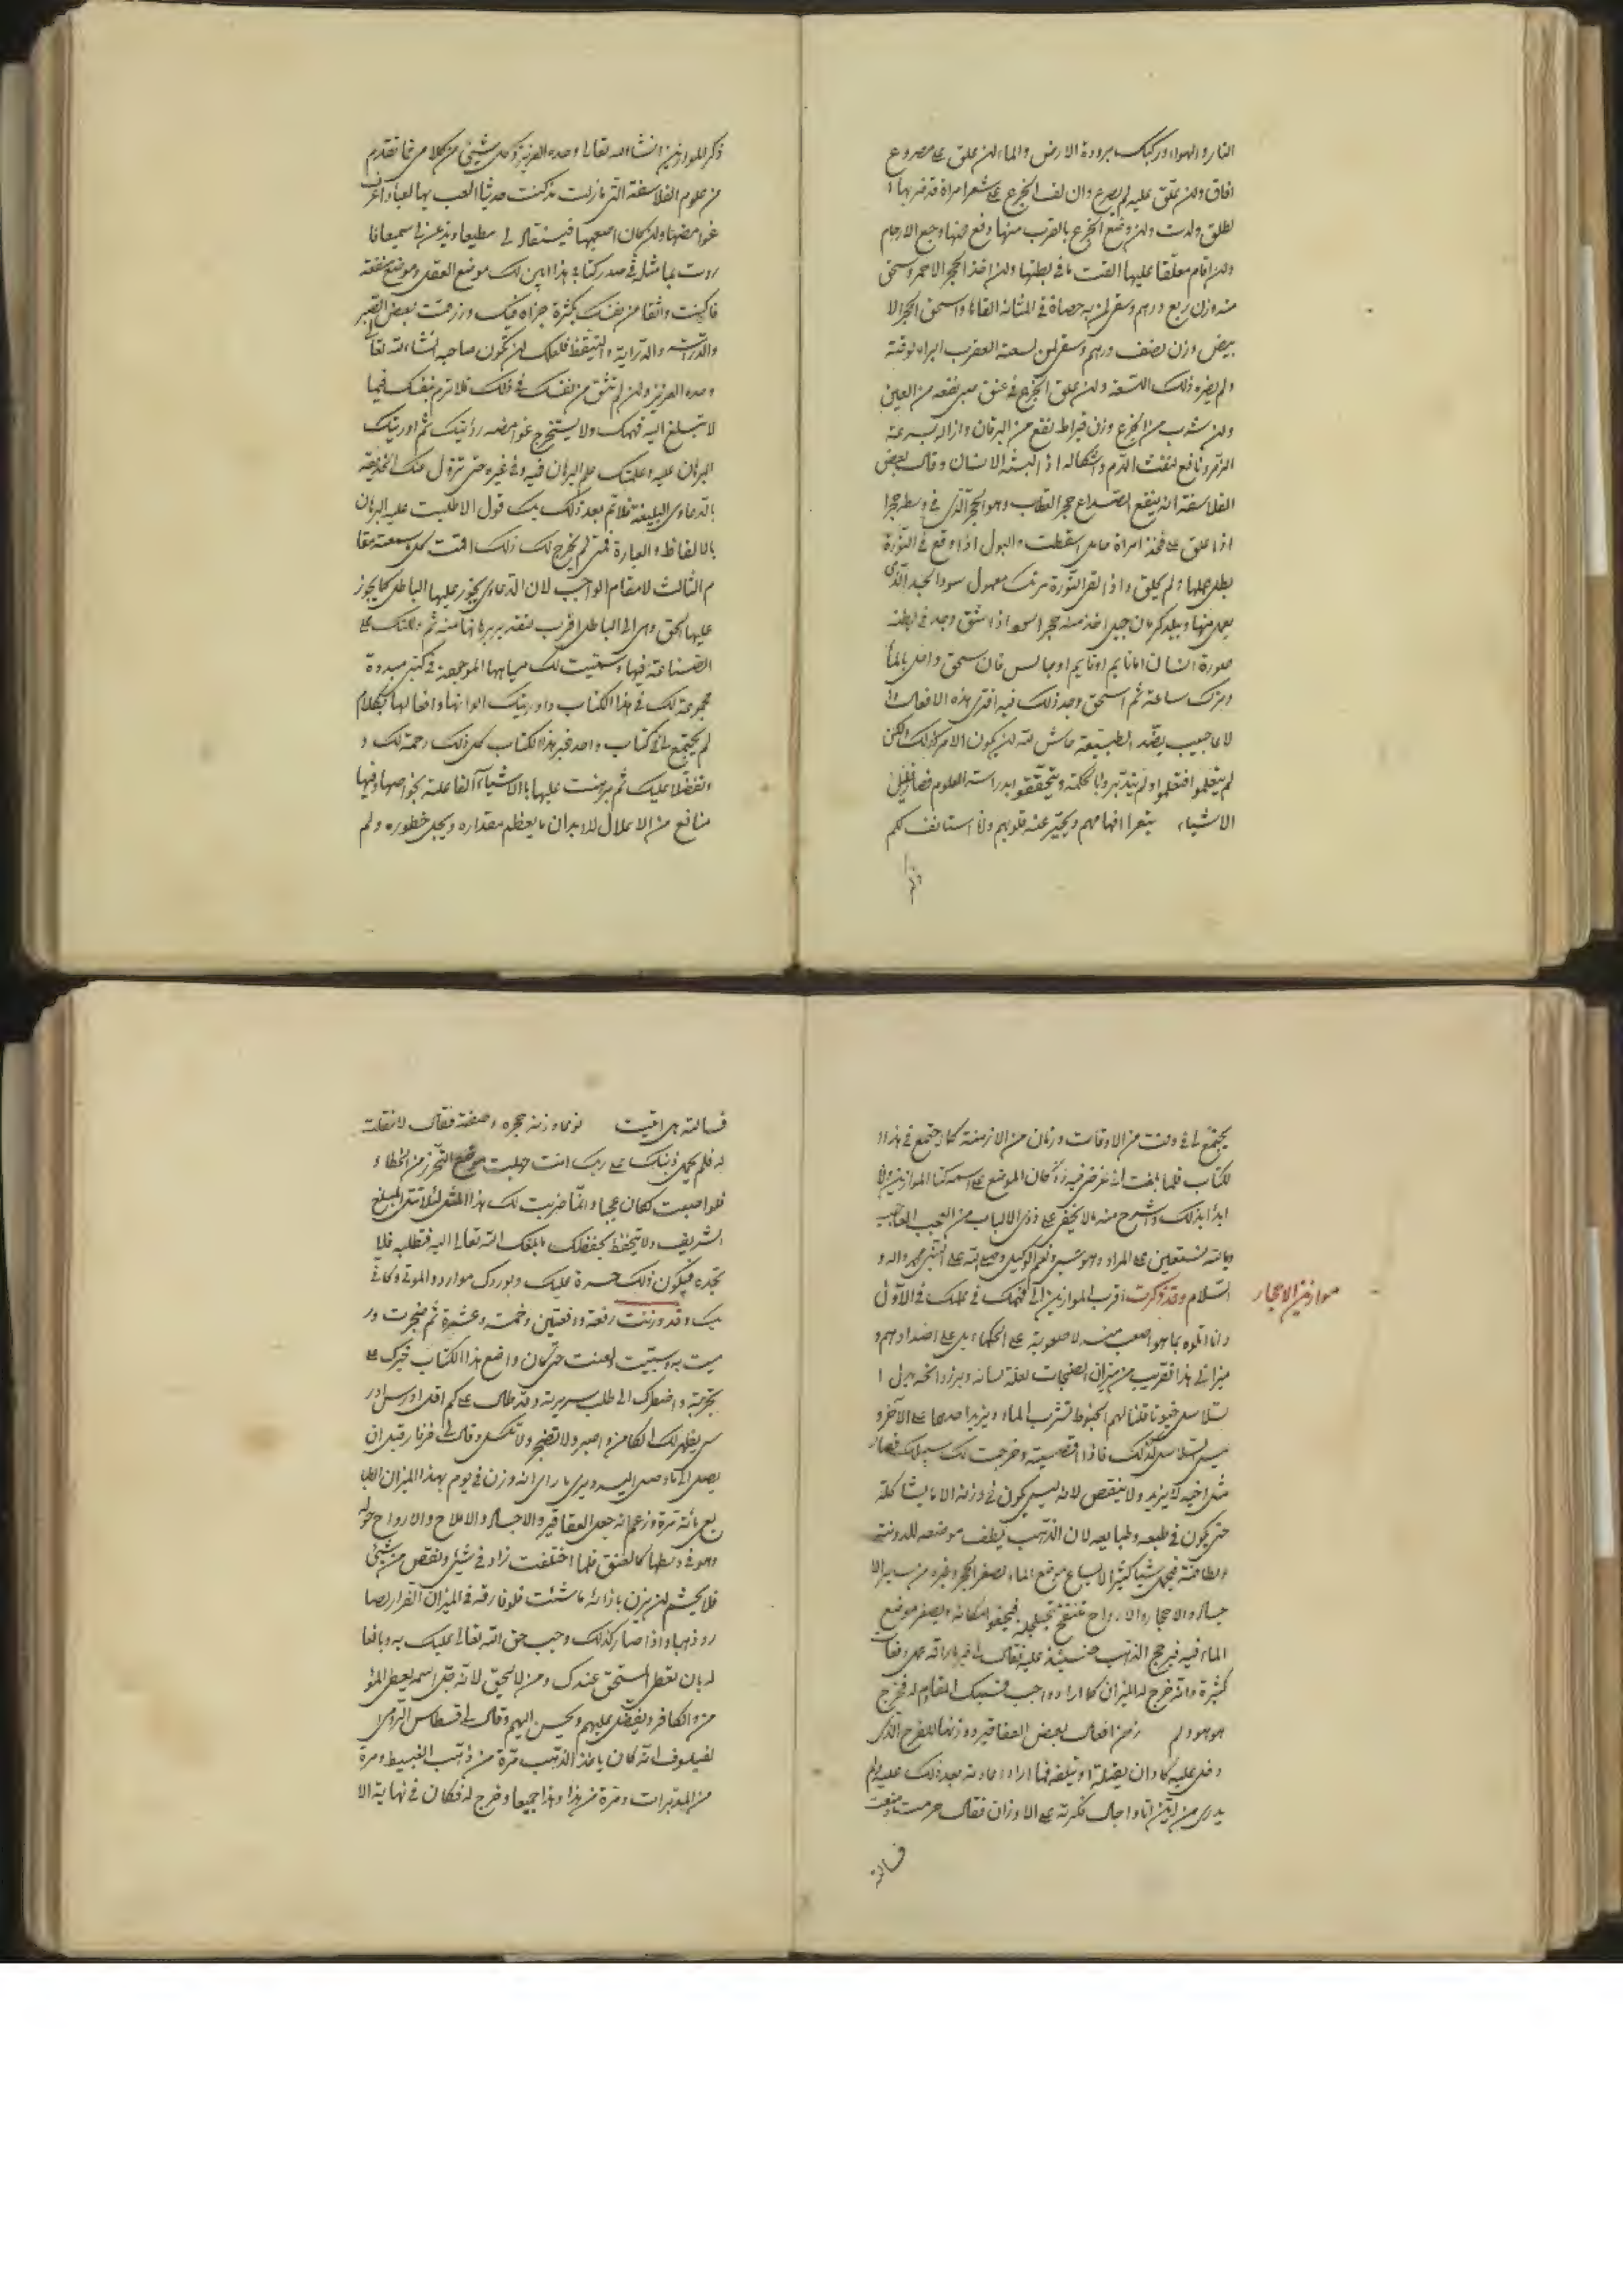 النار والهواء وركبك ببرودة الارض والماء لمن علق على مصروع
افاق ولمن علق عليه لم يصرع وان لف الجزع على شعر امراة قد ضربها ا
لطلق ولدت ولمن وضع الجزع بالقرب منها دفع عنها وجع الارحام
ولمن اقام معلقا عليها القت ما في بطنها ولمن اخذ الحجر الاحمر وسحق
منه وزن ربع درهم وسقى لمن به حصاة في المثانة القاها واسحق الحجر الا
بيض وزن نصف درهم وسقى لمن لسعته العقرب ابراه لوقته
ولم يضره ذلك اللسعة ولمن علق الجزع في عنق صبى نفعه من العين
ولمن شرب من الجزع وزن قيراط نفع من اليرقان وازاله بسرعة
نافع لنفث الدم واشكاله اذا لبسه الانسان وقالت بعض
الفلاسفة انه ينفع الصداع حجر العقاب وهو الحجر الذى في وسطه حجر ا
اذا علق على فخذ امراة حامل اسقطت والبول اذا وقع في النورة
بطل عملها ولم يحلق واذا القى النورة
كرمان جبل اخذ منه حجر اسود اذا شق وجد في بطنه
صورة انسان اما نايم او قايم او جالس فان سحق واصل بالماء
وترك ساعة ثم اسحق وجد ذلك فيه افترى هذه الافعال وا
لاعاجيب بضد الطبيعة حاش لله لمن يكون الامر كذلك ولكن
لم يتعلموا فتعلموا ولم يتدبروا بالحكمة ويتحققوا بدراسة العلوم فصار
الاشياء افهامهم ويحير عنه قلوبهم وانا استانف لكم
ذكر الموازين انشاء الله تعالى وحده العزيز وكل شيئ من كلامى مما تقدم
من علوم الفلاسفة التى ما زلت مذ كنت حدثا العب بها لعبا واعرف
غوامضها ولمن كان اصعبها فينقاد لى مطيعا ويذعن لى سميعا فا
روت مما مثل في صدر كتابى هذا ابين لك موضع العقل وموضع منفعته
فان كنت واثقا من نفسك بكثرة جزاه فيك ورزقت بعض الصبر
والدراسة والدراية والتيقظ فلعلك لمن تكون صاحبه انشاء الله تعالى
وحده العزيز ولمن لم تثق من نفسك في ذلك فلا ترم نفسك فيما
لا تبلغ اليه فهمك ولا يستخرج غوامضه رؤيتك ثم اوريتك
البرهان عليه واعلمتك علم البرهان فيه وفي غيره حتى تزول عنك الخديعة
بالدعاوى البليغة فلا تم بعد ذلك بك قول الا طلبت عليه البرهان
بالالفاظ والعبارة فمتى لم يخرج لك ذلك اقمت كل ما سمعته مقا
م الثالث لا مقام الواجب لان الدعاوى يجوز عليها الباطل كما يجوز
عليها الحق وهى الى الباطل اقرب لتفرد برهانها منه ثم دللتك على
الصناعة فيها وسميت لك مياهها الموجهة في كتبى مبددة
مجموعة لك في هذا الكتاب واوريتك الوانها وافعالها بكلام
لم يجتمع لى في كتاب واحد غير هذا الكتاب كل ذلك رحمة لك و
تفضلا عليك ثم برهنت عليها بالاشياء الفاعلة بخواصها وفيها
منافع من الاعلال للابدان ما يعظم مقداره ويجل خطوره ولم
يجتمع لى في وقت من الاوقات وزمان من الازمنة كما اجتمع في هذا ا
لكتاب فلما بلغت الى غرضى فيه وكان الموضع على اسمه كتاب الموازين وانا
ابدا بذلك واشرح منه ما لا يخفى على ذوى الالباب من العجب العجاب
وبالله نستعين على المراد وهو حسبى ونعم الوكيل وصلى الله على النبى محمد واله و
السلام وقد ذكرت اقرب الموازين الى فهمك في عملك في الاول
موازين الاحجار
وانا اتلوه بما هو اصعب منه لا صعوبة على الحكماء بل على اضدادهم و
ميزانى هذا تقريب من ميزان الصنجات لعلة لسانه
سلاسل خيوطا فلنا لهم الخيوط تشرب الماء ويزيد احدها على الآخر و
ليس السلاسل كذلك فاذا اقتصيته وخرجت لك سبيلك فصار
مثل اخيه لا يزيد ولا ينقص لانه ليس يكون في وزنه الا ما يشاكله
حتى يكون في طبعه وطبايعه لان الذهب يلطف موضعه للدونته
ولطافته فيحمل شيئا كثيرا لاتساع موضع الماء لصغر الحجر وغيره من سائر الا
جساد والاحجار والارواح تنتفخ فيجفو مكانه ويصغر موضع
الماء فيه فيرجح الذهب حينئذ عليه فقال لى غير مرة دفعات
كثيرة وانه خرج له الميزان كما اراد وواجب المقاوم له فخرج
هو هو ولم من افعال بعض العقاقير ووزنها للفرح الذى
دخل عليه كاد ان يقتله او يتلفه فلما اراد معاودته بعد ذلك عليه لم
يدرى من اين اتاه واجال فكرته على الاوزان فقال حرمت ومنعت
فسالته
فسالته هل اقيت يوما وزنه بحجره وصفته فقال لا فقلت
له فلم تحمل ذنبك على ربك انت جهلت موضع التحرز من الخطاء و
فلو اصبت لكان عجبا وانما ضربت لك هذا المثل لئلا تنسى المبلغ
الشريف ولا تتحفظ بحفظك ما بلغك الله تعالى اليه فتطلبه فلا
تجده فيكون ذلك حسرة عليك ويوردك موارد الموتى وكانى
بك وقد وزنت دفعة ودفعتين وخمسة وعشرة ثم ضجرت ور
ميت به وسببت ولعنت حتى كان واضع هذا الكتاب خيرك على
تجربة واضطرك الى طلب سريرته وقد طال على كم
يظهر لك الكامن واصبر ولا تضجر ولا تكسل وقال لى قبل ان
يصل الى ما وصل اليه ويرى ما راى انه وزن في يوم بهذا الميزان الطبا
يع مائة مرة وزعم انه جعل العقاقير والاجساد والاملاح والارواح حوله
وهو في وسطها كالغنق فلما اختلفت زاد في شيئ ونقص من شيئ
فلا يحشم لمن يزن بازائه ما شئت فلو فارقه في الميزان القرار لصا
رو ذهبا واذا صار كذلك وجب حق الله تعالى عليك به وبافعا
له بان تعطى المستحق عندك ومن لا يستحق لانه جل اسمه يعطى المؤ
من والكافر ويتفضل عليهم ويحسن اليهم وقال لى قسطاس الرومى
لفيلسوف انه كان ياخذ الذهب مرة من ذهب البسيط ومرة
من المدبرات ومرة من هذا وهذا جميعا وخرج له فكان في نهاية الا